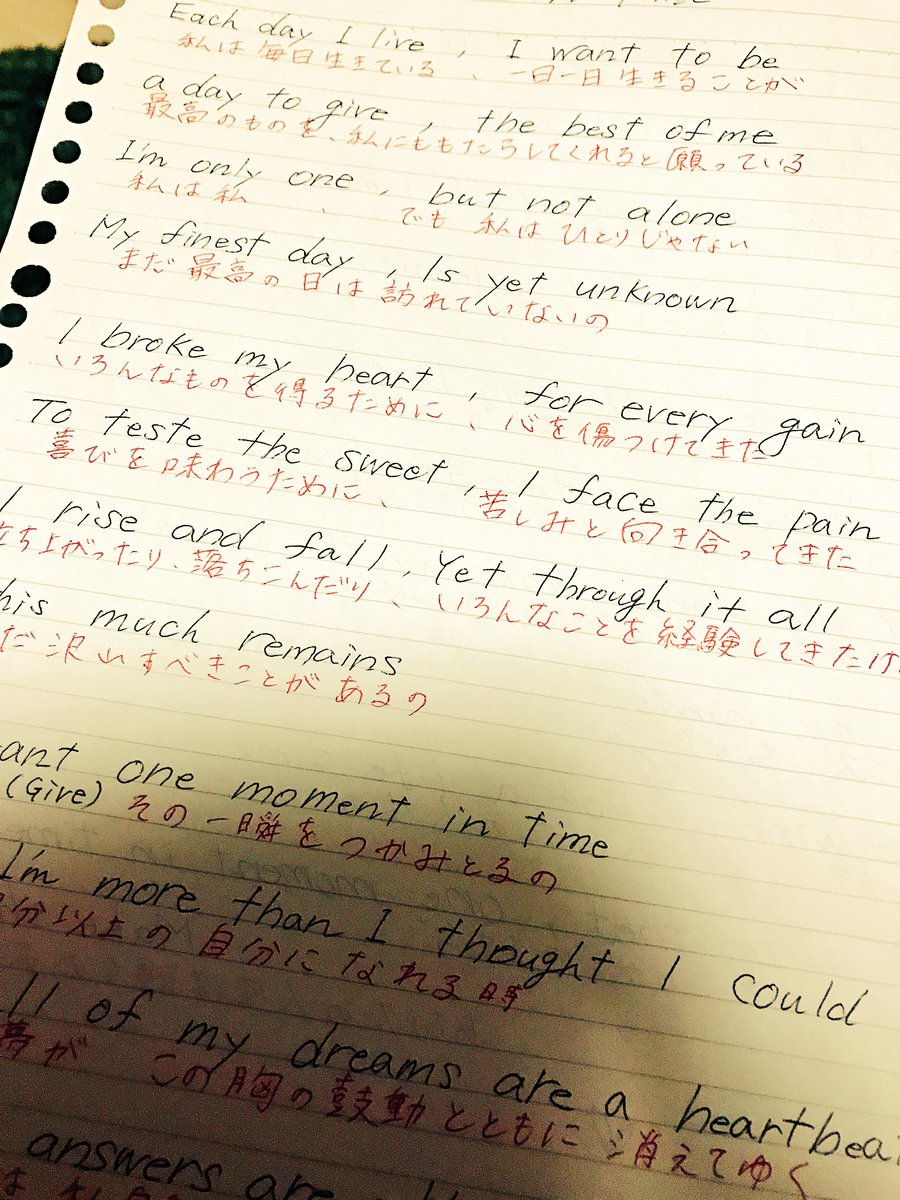 Each day I live, I want to be
私は毎日生きている、一日一日生きることが
a day to give, the best of me
最高のものを、私にももたらしてくれると願っている
I'm only one, but not alone
私は私、でも私はひとりじゃない
My finest day, Is yet unknown
まだ最高の日は訪れていないの
I broke my heart, for every gain
いろんなものを得るために、心を傷つけてきた
To teste the sweet, I face the pain
喜びを味わうために、苦しみと向き合ってきた
I rise and fall, Yet through it all
立ち上がったり、落ちこんだり、いろんなことを経験してきたけ
his much remains
だ沢山すべきことがあるの
ant one moment in time
(Give) その一瞬をつかみとるの
I'm more than I thought I could
分以上の自分になれる時
ll of my dreams are a heartbea
夢が この胸の鼓動とともに消えてゆく
answers are